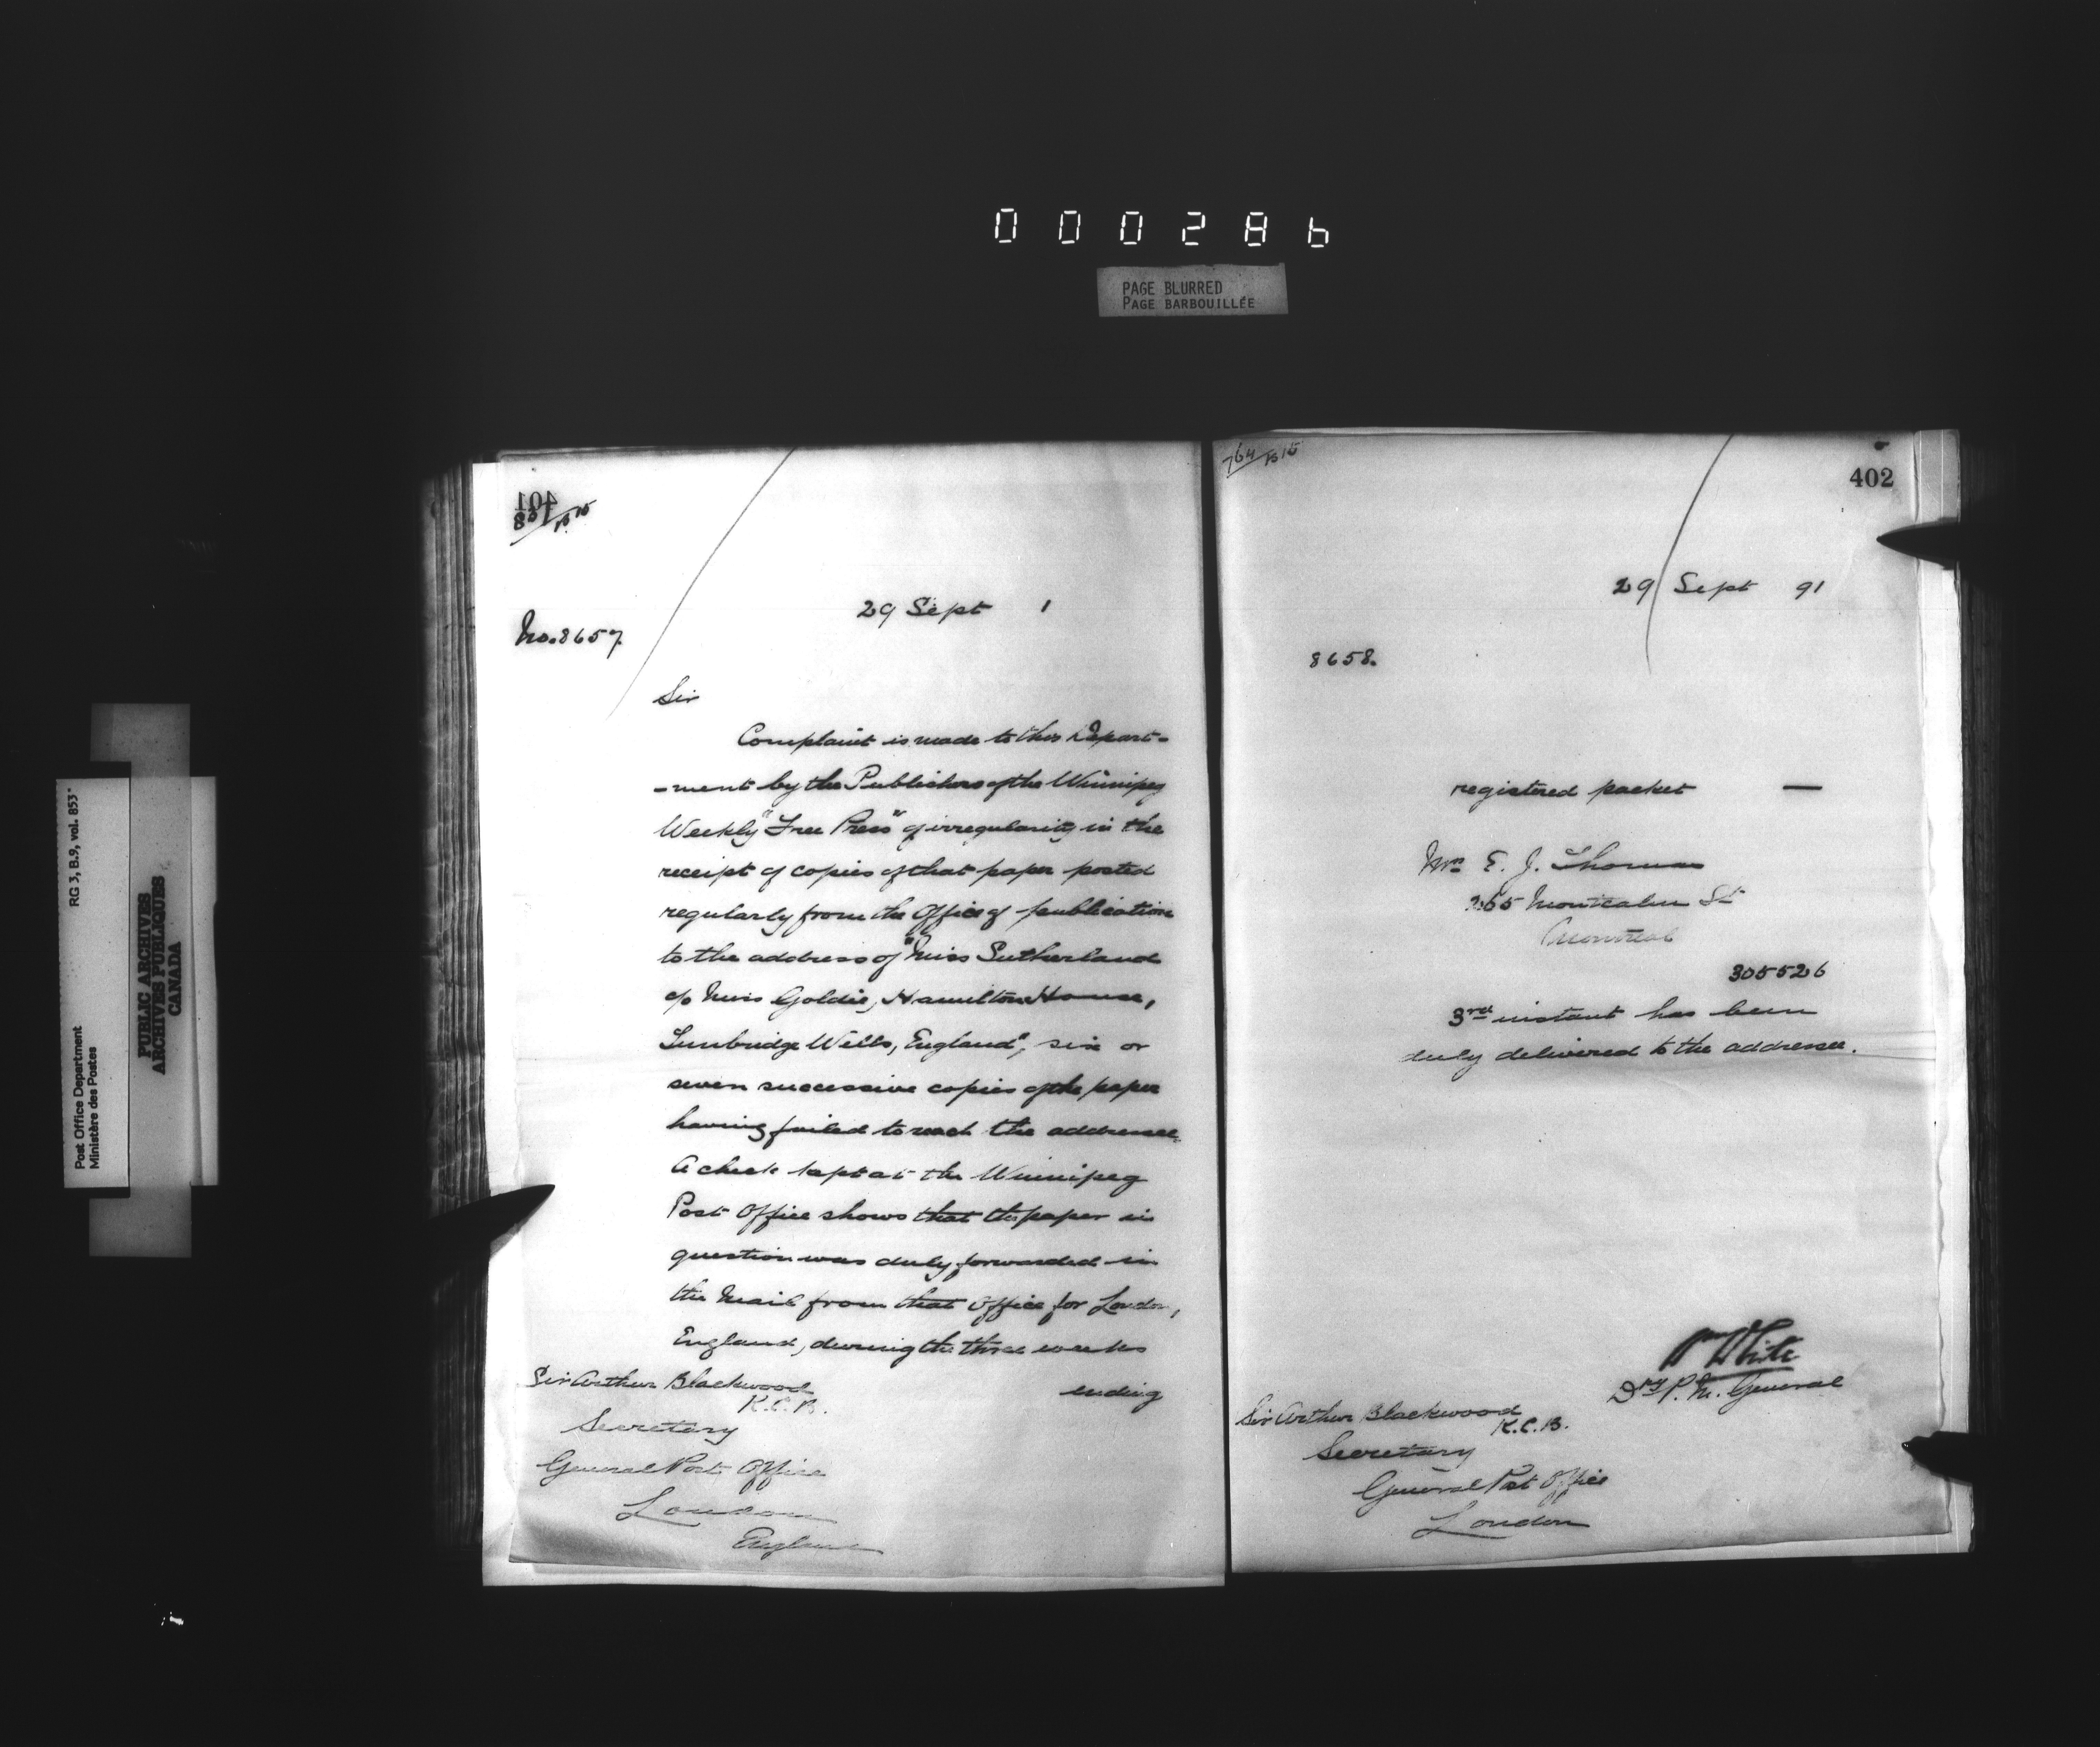 000286
PAGE BLURRED
PAGE BARBOUILLÉE
RG 3, B.9, vol. 853
Post Office Department
Ministère des Postes
PUBLIC ARCHIVES
ARCHIVES PUBLIQUES
CANADA
401
29 Sept 1
No. 8657.
Sir
Complaint is made to this Depart-
-ment by the Publishers of the Winnipeg
Weekly "Free Press" of irregularity in the
receipt of copies of that paper posted
regularly from the Office of publication
to the address of "Miss Sutherland
c/o Miss Goldie, Hamilton House,
Tunbridge Wells, England", six or
seven successive copies of the paper
having failed to reach the addressee.
A check kept at the Winnipeg
Post Office shows that the paper in
question was duly forwarded in
the Mail from that Office for London,
England, during the three weeks
ending
Sir Arthur Blackwood
K.C.B.
Secretary
General Post Office
London
England
764/B15
402
29 Sept 91
8658.
registered packet —
Mrs E. J. Thomas
Montcalm St
Montreal
305526
3rd instant has been
duly delivered to the addressee.
Wm White
Dy P. M. General
Sir Arthur Blackwood
K.C.B.
Secretary
General Post Office
London